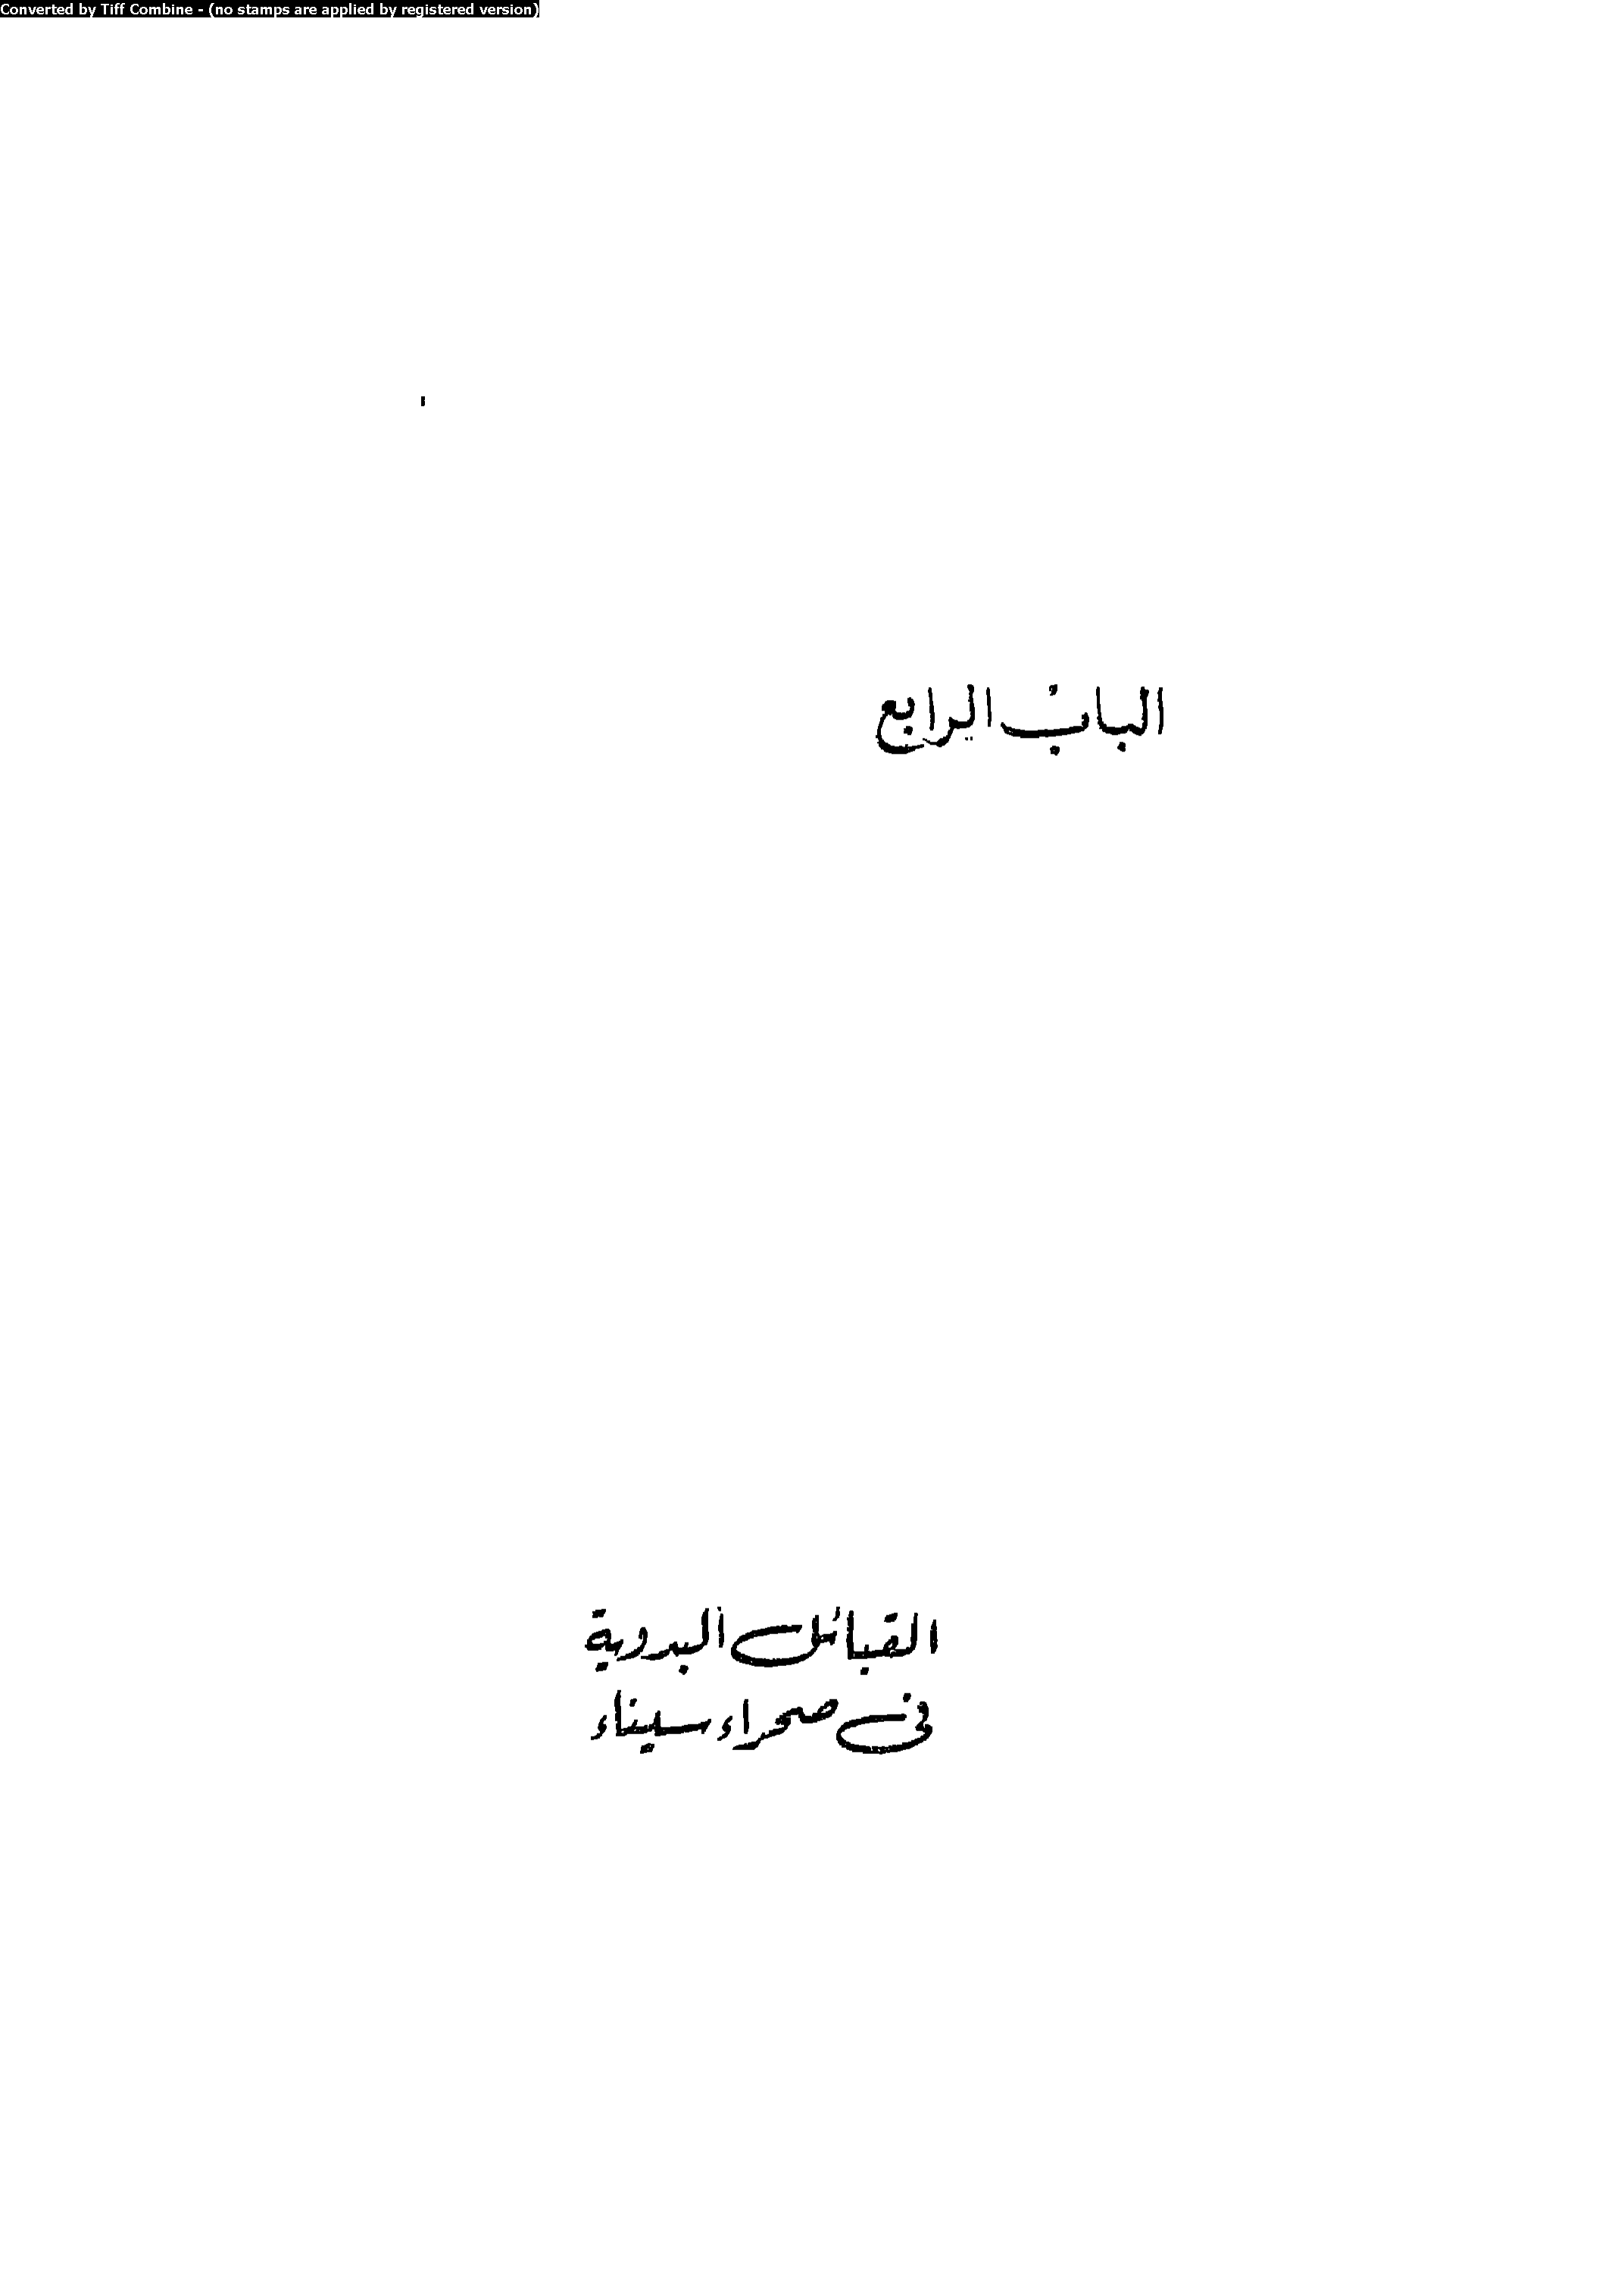 Converted by Tiff Combine - (no stamps are applied by registered version)
الباب الرابع
القبائل البدوية
فى صحراء سيناء